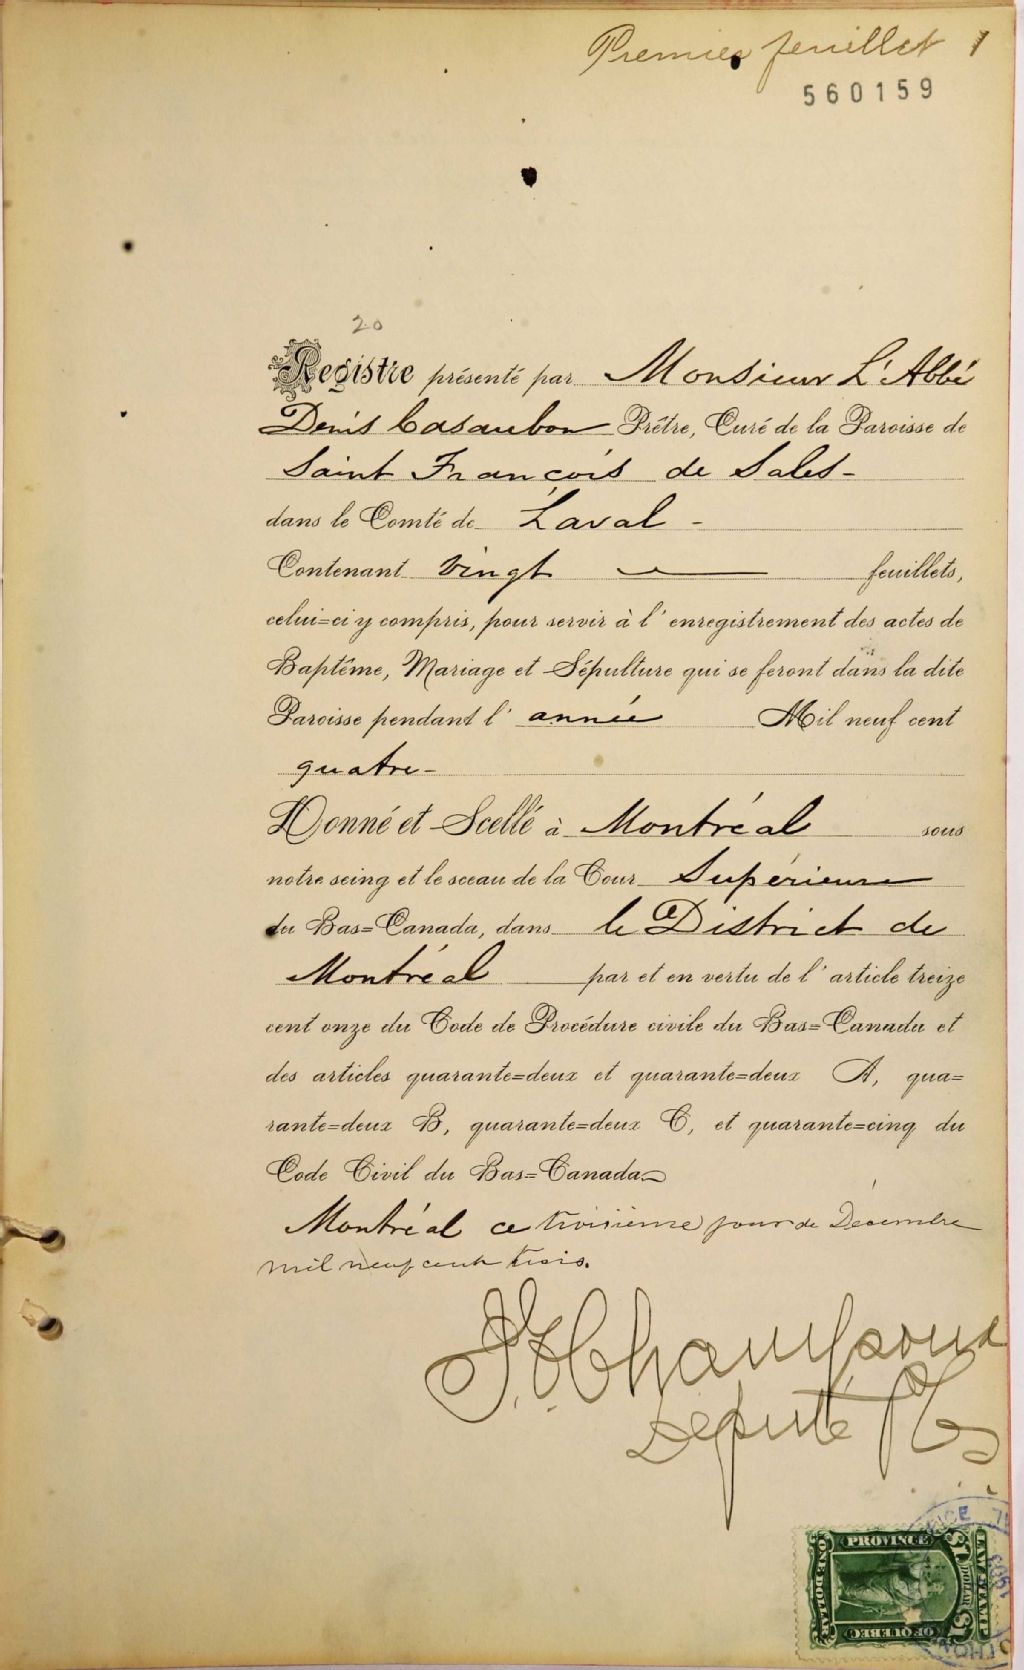 Premier feuillet 1
560159
20
Registre présenté par Monsieur L'Abbé
Denis Casaubon Prêtre, Curé de la Paroisse de
Saint François de Sales -
dans le Comté de Laval -
Contenant vingt feuillets,
celui=ci y compris, pour servir à l'enregistrement des actes de
Baptême, Mariage et Sépulture qui se feront dans la dite
Paroisse pendant l'année Mil neuf cent
quatre -
Donné et Scellé à Montréal sous
notre seing et le sceau de la Cour Supérieure
du Bas=Canada, dans le District de
Montréal par et en vertu de l'article treize
cent onze du Code de Procédure civile du Bas=Canada et
des articles quarante=deux et quarante=deux A, qua=
rante=deux B, quarante=deux C, et quarante=cinq du
Code Civil du Bas=Canada
Montréal ce troisième jour de Décembre
mil neuf cent trois.
Député
PROVINCE
OF QUEBEC
ONE DOLLAR
LAW STAMP
$1 DOLLAR $1
1903